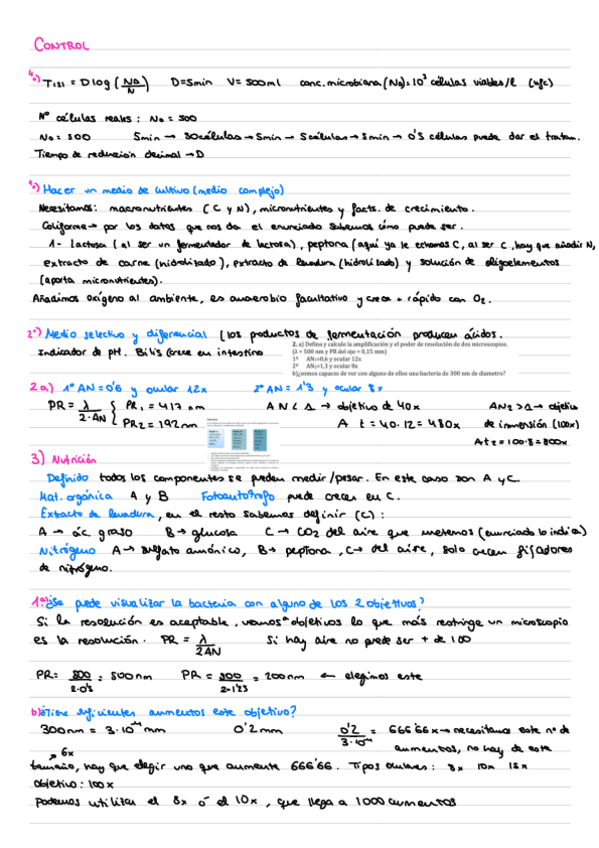 CONTROL
4a) T121 = D log (No/N) D=5min V=500ml conc. microbiana (No)=10³ células viables/l (ufc)
Nº células reales: No = 500
No = 500 5min → 50 células → 5min → 5 células → 5min → 0'5 células puede dar el tratam.
Tiempo de reducción decimal → D
1º) Hacer un medio de cultivo (medio complejo)
Necesitamos: macronutrientes (C y N), micronutrientes y facts. de crecimiento.
Coliforme → por los datos que nos da el enunciado sabemos cómo puede ser.
1- Lactosa (al ser un fermentador de lactosa), peptona (aquí ya le echamos C, al ser C, hay que añadir N,
extracto de carne (hidrolizado), extracto de levadura (hidrolizado) y solución de oligoelementos
(aporta micronutrientes).
Añadimos oxígeno al ambiente, es anaerobio facultativo y crece + rápido con O2.
2º) Medio selectivo y diferencial (los productos de fermentación producen ácidos.
Indicador de pH. Bilis (crece en intestino
2. a) Defina y calcule la amplificación y el poder de resolución de dos microscopios.
(λ = 500 nm y PR del ojo = 0,15 mm)
1º AN1=0,6 y ocular 12x
2º AN2=1,3 y ocular 8x
b)¿somos capaces de ver con alguno de ellos una bacteria de 300 nm de diametro?
2a) 1º AN=0'6 y ocular 12x 2º AN = 1'3 y ocular 8x
PR = λ/2·AN { PR1 = 417 nm AN < 1 → objetivo de 40x AN2 > 1 → objetivo
PR2 = 192nm A t = 40·12 = 480x de inmersión (100x)
At2 = 100·8 = 800x
3) Nutrición
Definido todos los componentes se pueden medir/pesar. En este caso son A y C.
Mat. orgánica A y B Fotoautótrofo puede crecer en C.
Extracto de levadura, en el resto sabemos definir (C):
A → ác. graso B → glucosa C → CO2 del aire que metemos (enunciado lo indica)
Nitrógeno A → sulfato amónico, B → peptona, C → del aire, solo crecen fijadores
de nitrógeno.
1.a) ¿Se puede visualizar la bacteria con alguno de los 2 objetivos?
Si la resolución es aceptable, vamos a objetivos lo que más restringe un microscopio
es la resolución. PR = λ/2AN Si hay aire no puede ser + de 1'00
PR = 500/2·0'5 = 500nm PR = 500/2·1'25 = 200nm ← elegimos este
b) ¿Tiene suficientes aumentos este objetivo?
300nm = 3·10⁻⁴ mm 0'2mm 0'2/3·10⁻⁴ = 666'66x → necesitamos este nº de
aumentos, no hay de este
tamaño, hay que elegir uno que aumente 666'66. Tipos oculares: 6x 8x 10x 15x
Objetivo: 100x
Podemos utilizar el 8x ó el 10x, que llega a 1000 aumentos